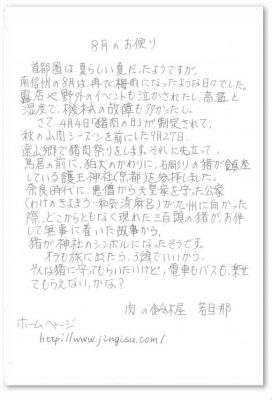 8月のお便り
首都圏は夏らしい夏だったようですが、
南信州の8月は、再び梅雨になったような日々でした。
露店や野外のイベントも泣かされたし、高温と
湿度で、機械の故障も多かったし。
さて、4月4日「猪肉の日」が制定されて、
秋の山肉シーズンを前にした9月27日、
遠山郷で猪肉祭りをします。それに先立って、
鳥居の前に、狛犬のかわりに、石彫りの猪が鎮座
している護王神社(京都)を参拝しました。
奈良時代に、悪僧から天皇家を守った公家
(わけのきよまろ・和気清麻呂)が九州に向かった
際、どこからともなく現れた三百頭の猪が、お伴
して無事に着いた故事から、
猪が神社のシンボルになったそうです。
オラも旅に出たら、3頭でいいから、
そんな猪に守ってもらいたいけど、電車もバスも、乗せ
てもらえない、かな?
肉の鈴木屋 若旦那
ホームページ
http://www.jingisu.com/